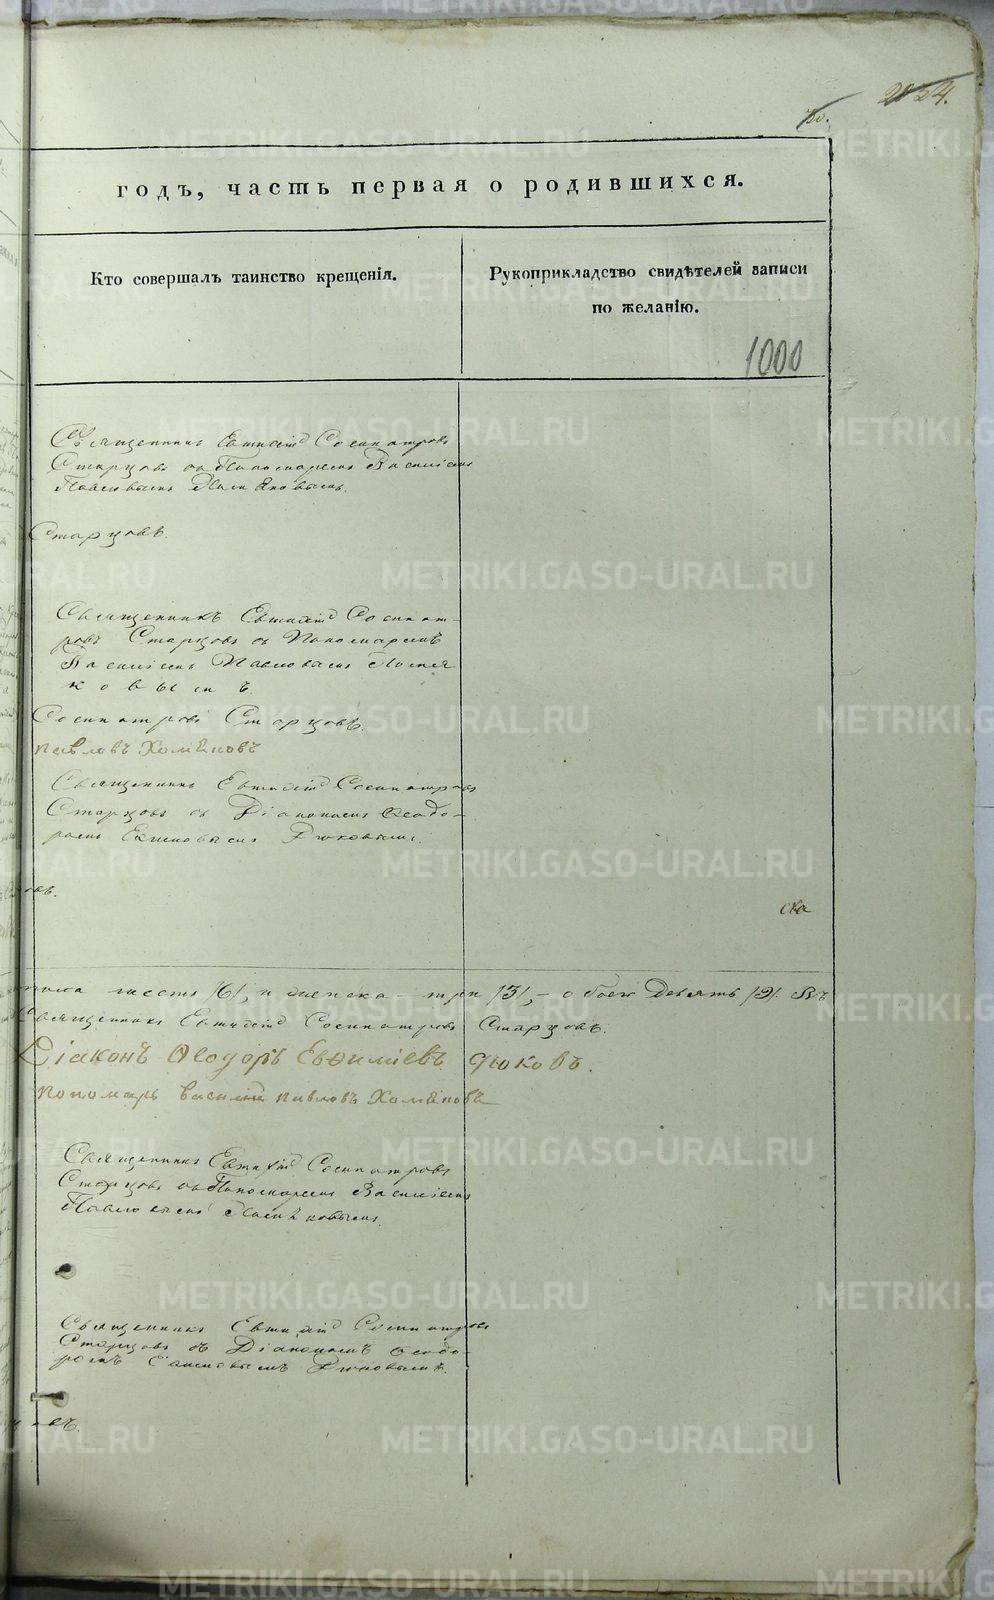 2024.
30.
годъ, часть первая о родившихся.
Кто совершалъ таинство крещенія.
Рукоприкладство свидѣтелей записи
по желанію.
1000
Священникъ Евтихій Сосипатровъ
Старцовъ съ Пономаремъ Василіемъ
Павловымъ
Старцовъ.
Священникъ Евтихій Сосипат-
ровъ Старцовъ съ Пономаремъ
Василіемъ Павловымъ Хомя
ковымъ
Сосипатровъ Старцовъ.
Павловъ Хомяковъ
Священникъ Евтихій Сосипатровъ
Старцовъ съ Діакономъ Ѳеодо-
ромъ Дюковымъ.
овъ.
ска
пола шесть /6/, и женска - три /3/, - обоего Девять /9/. Въ
Священникъ Евтихій Сосипатровъ Старцовъ.
Діаконъ Ѳеодоръ Евѳиміевъ Дюковъ.
Пономарь Василій Павловъ Хомяковъ
Священникъ Евтихій Сосипатровъ
Старцовъ съ Пономаремъ Василіемъ
Павловымъ Хомяковымъ.
Священникъ Евтихій Сосипатровъ
Старцовъ съ Діакономъ Ѳеодо-
ромъ Дюковымъ.
METRIKI.GASO-URAL.RU